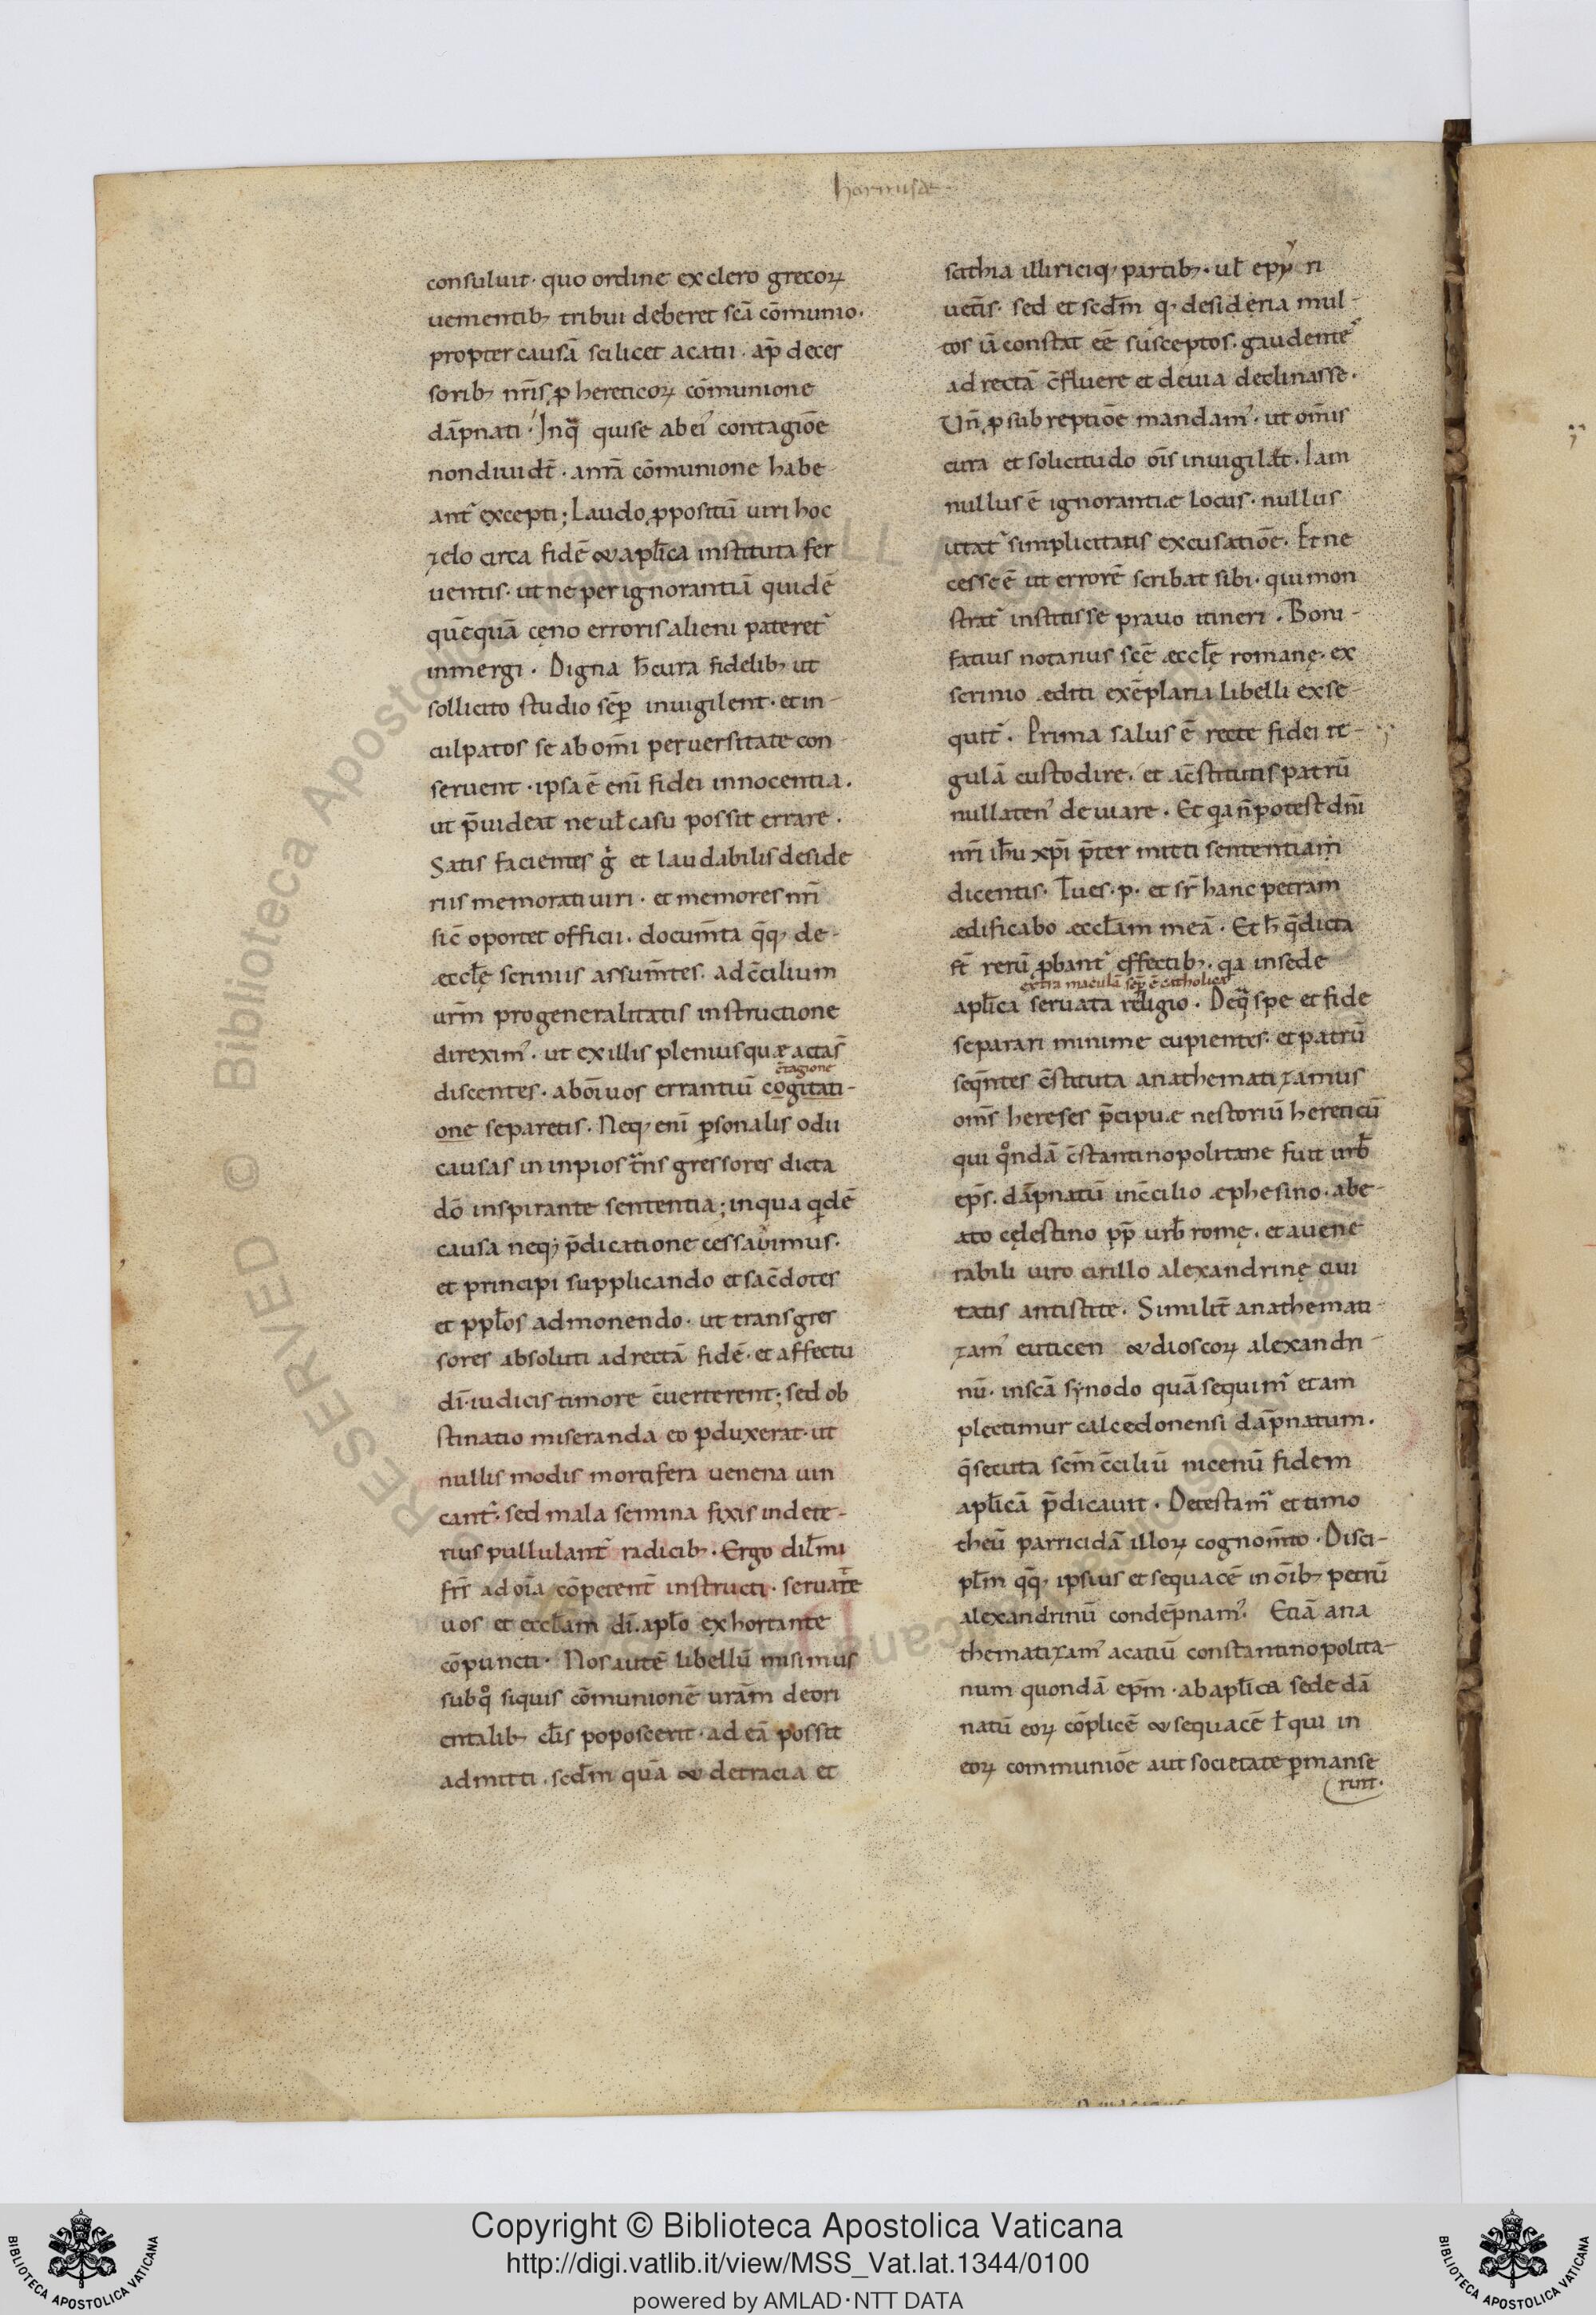 hormisdæ
consuluit· quo ordine ex clero grecoꝝ
uenientib; tribui deberet scā cōmunio·
propter causā scilicet acatii· ap̄ deces
sorib; nr̄is, ꝓ hereticoꝝ cōmunione
dāpnati· In qͣ qui se ab ei᾽ contagiōe
non diuidt̄· a nr̄a cōmunione habe
ant᾽ excepti; Laudo ꝓpositū uiri hoc
zelo circa fidē & apl̄ica instituta fer
uentis· ut ne per ignorantiā quidē
quēquā cęno erroris alieni pateret᾽
inmergi· Digna h̄ cura fidelib; ut
sollicito studio sēꝑ inuigilent· et in-
culpatos se ab om̄i peruersitate con
seruent· ipsa ē eni fidei innocentia·
ut p̄uideat ne ul̄ casu possit errare·
Satis facientes g̊ et laudabilis deside
riis memorati uiri· et memores nr̄i
sic̄ oportet officii· docum̄ta q̄q; de-
æccl̄ę scriniis assum̄tes· ad c̄cilium
ur̄m pro generalitatis instructione
direxim᾽· ut ex illis plenius quæ acta s̄
c̄tagione
discentes· ab oī uos errantiū cogitati-
one separetis· Neq; enī ꝑsonalis odii
causas in inpios tͣnsgressores dicta
dō inspirante sententia; in qua qͥdē
causa neq; p̄dicatione cessauimus·
et principi supplicando et sac̄dotes
et ppl̄os admonendo· ut transgres
sores absoluti ad rectā fidē· et affectu
dī· iudicis timore c̄uerterent; sed ob
stinatio miseranda eo ꝑduxerat· ut
nullis modis mortifera uenena uin
cant᾽· sed mala semina fixis in dete-
rius pullulant᾽ radicib;· Ergo dil̄mi
fr̄s ad oīa cōpetent᾽ instructi· seruare
uos et eccl̄am dī· apl̄o exhortante
cōpuncti· Nos autē libellū misimus
sub qͦ siquis cōmunionē ur̄am de ori
entalib; cl̄is poposcerit· ad eā possit
admitti· sed̄m quā & de tracia et
scithia illiriciq; partib;· ul̄ epyri
uet̄is· sed et sed̄m q; desideria mul-
tos iā constat eē susceptos· gaudente᾽
ad rectā c̄fluere et deuia declinasse·
Un̄ ꝓ subreptiōe mandam᾽· ut om̄is
cura et solicitudo oīs inuigilæt· Iam
nullus ē ignorantiæ locus· nullus
utat᾽ simplicitatis excusatiōe· Et ne
cesse ē ut errorē scribat sibi· qui mon
strat᾽ institisse prauo itineri· Boni-
fatius notarius scē æccl̄ę romanę· ex
scrinio editi exēplaria libelli exse-
quit᾽· Prima salus ē recte fidei re-
gulā custodire· et a c̄stitutis patrū
nullaten᾽ deuiare· Et qͥa n̄ potest dn̄i
nr̄i ihū xp̄i p̄termitti sententiam
dicentis· Tu es· p· et sr̄ hanc petram
ædificabo æccl̄am meā· Et h̄ q̄ dicta
st̄ rerū ꝓbant᾽ effectib;· qͥa in sede
extra maculā sēꝑ ē catholica
apl̄ica seruata religio· De qͣ spe et fide
separari minime cupientes· et patrū
seq̄ntes c̄stituta anathematizamus
om̄s hereses p̄cipuæ nestoriū hereticū
qui qͦndā c̄stantinopolitane fuit urb̄
ep̄s· dāpnatū in c̄cilio æphesino· a be-
ato cęlestino pp̄ urb̄ romę· et a uene
rabili uiro cirillo alexandrinę ciui
tatis antistite· Similit̄ anathemati-
zam᾽ euticen & dioscoꝝ alexandri-
nū· in scā synodo quā sequim᾽ et am
plectimur calcedonensi dāpnatum·
q̄ secuta scm̄ c̄ciliū nicenū fidem
apl̄icā p̄dicauit· Detestam᾽ et timo
theū parricidā illoꝝ cognom̄to· Disci-
pl̄m qͥq; ipsius et sequacē in oīb; petrū
alexandrinū condēpnam᾽· Etiā ana
thematizam᾽ acatiū constantinopolita-
num quondā ep̄m· ab apl̄ica sede dā
natū eoꝝ cōplicē & sequacē l̄ qui in
eoꝝ communiōe aut societate ꝑmanse
runt·
RESERVED © Biblioteca Apostolica Vaticana
Copyright © Biblioteca Apostolica Vaticana
http://digi.vatlib.it/view/MSS_Vat.lat.1344/0100
powered by AMLAD·NTT DATA
BIBLIOTECA APOSTOLICA VATICANA
BIBLIOTECA APOSTOLICA VATICANA